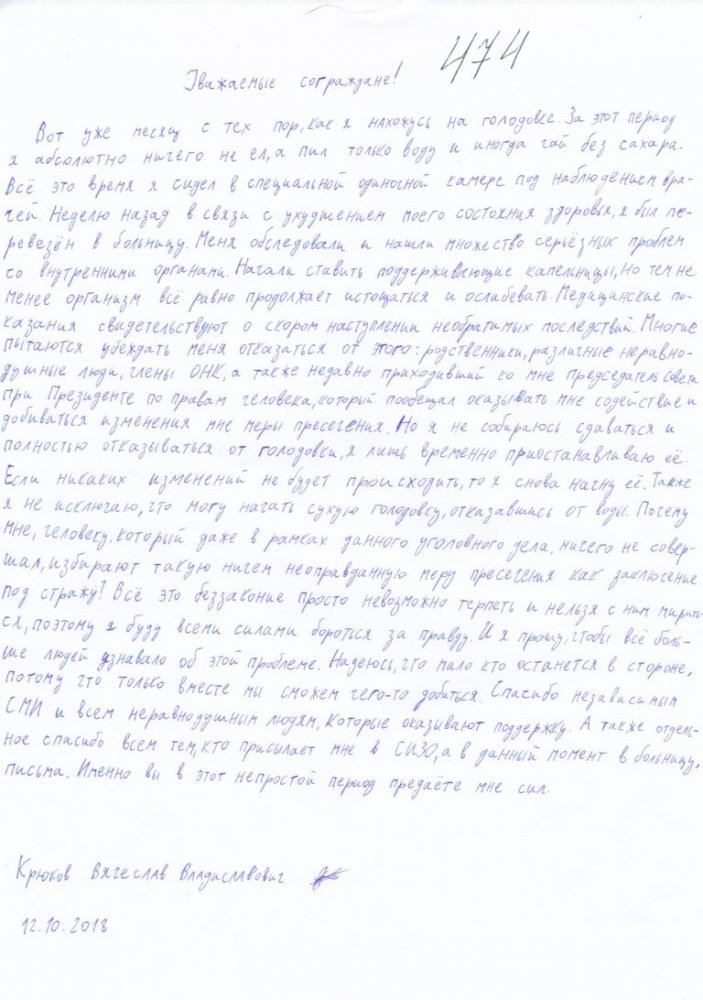 474
Уважаемые сограждане!
Вот уже месяц с тех пор, как я нахожусь на голодовке. За этот период
я абсолютно ничего не ел, а пил только воду и иногда чай без сахара.
Всё это время я сидел в специальной одиночной камере под наблюдением вра-
чей. Неделю назад в связи с ухудшением моего состояния здоровья, я был пе-
ревезён в больницу. Меня обследовали и нашли множество серьёзных проблем
со внутренними органами. Начали ставить поддерживающие капельницы, но тем не
менее организм всё равно продолжает истощаться и ослабевать. Медицинские по-
казания свидетельствуют о скором наступлении необратимых последствий. Многие
пытаются убеждать меня отказаться от этого: родственники, различные неравно-
душные люди, члены ОНК, а также недавно приходивший ко мне председатель совета
при Президенте по правам человека, который пообещал оказывать мне содействие и
добиваться изменения мне меры пресечения. Но я не собираюсь сдаваться и
полностью отказываться от голодовки, я лишь временно приостанавливаю её.
Если никаких изменений не будет происходить, то я снова начну её. Также
я не исключаю, что могу начать сухую голодовку, отказавшись от воды. Почему
мне, человеку, который даже в рамках данного уголовного дела, ничего не совер-
шал, избирают такую ничем неоправданную меру пресечения как заключение
под стражу? Всё это беззаконие просто невозможно терпеть и нельзя с ним мирить-
ся, поэтому я буду всеми силами бороться за правду. И я прошу, чтобы всё боль-
ше людей узнавало об этой проблеме. Надеюсь, что мало кто останется в стороне,
потому что только вместе мы сможем чего-то добиться. Спасибо независимым
СМИ и всем неравнодушным людям, которые оказывают поддержку. А также отдель-
ное спасибо всем тем, кто присылает мне в СИЗО, а в данный момент в больницу,
письма. Именно вы в этот непростой период предаёте мне сил.
Крюков Вячеслав Владиславович
12.10.2018